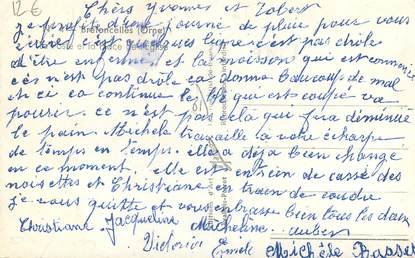 12€
Chers Yvonne et Robert
je profite d'une journé de pluie pour vous
quelques lignes c'est pas drole
d'être enfermé et la moisson qui est commencé
ces n'est pas drole ca donne beaucoups de mal
et ci ca continue le blé qui est coupé va
pourrir. ce n'est pas cela qui fera diminué
le pain. Michèle travaille là votre écharpe
de temps en temps. elle a déja bien changé
en ce moment. elle est en rien de cassé des
noisettes et Christiane en train de coudre
je vous quitte et vous embrasse bien tous les deux
Christiane Jacqueline Micheline
Victorine Michèle Basset
Bretoncelles (Orne)